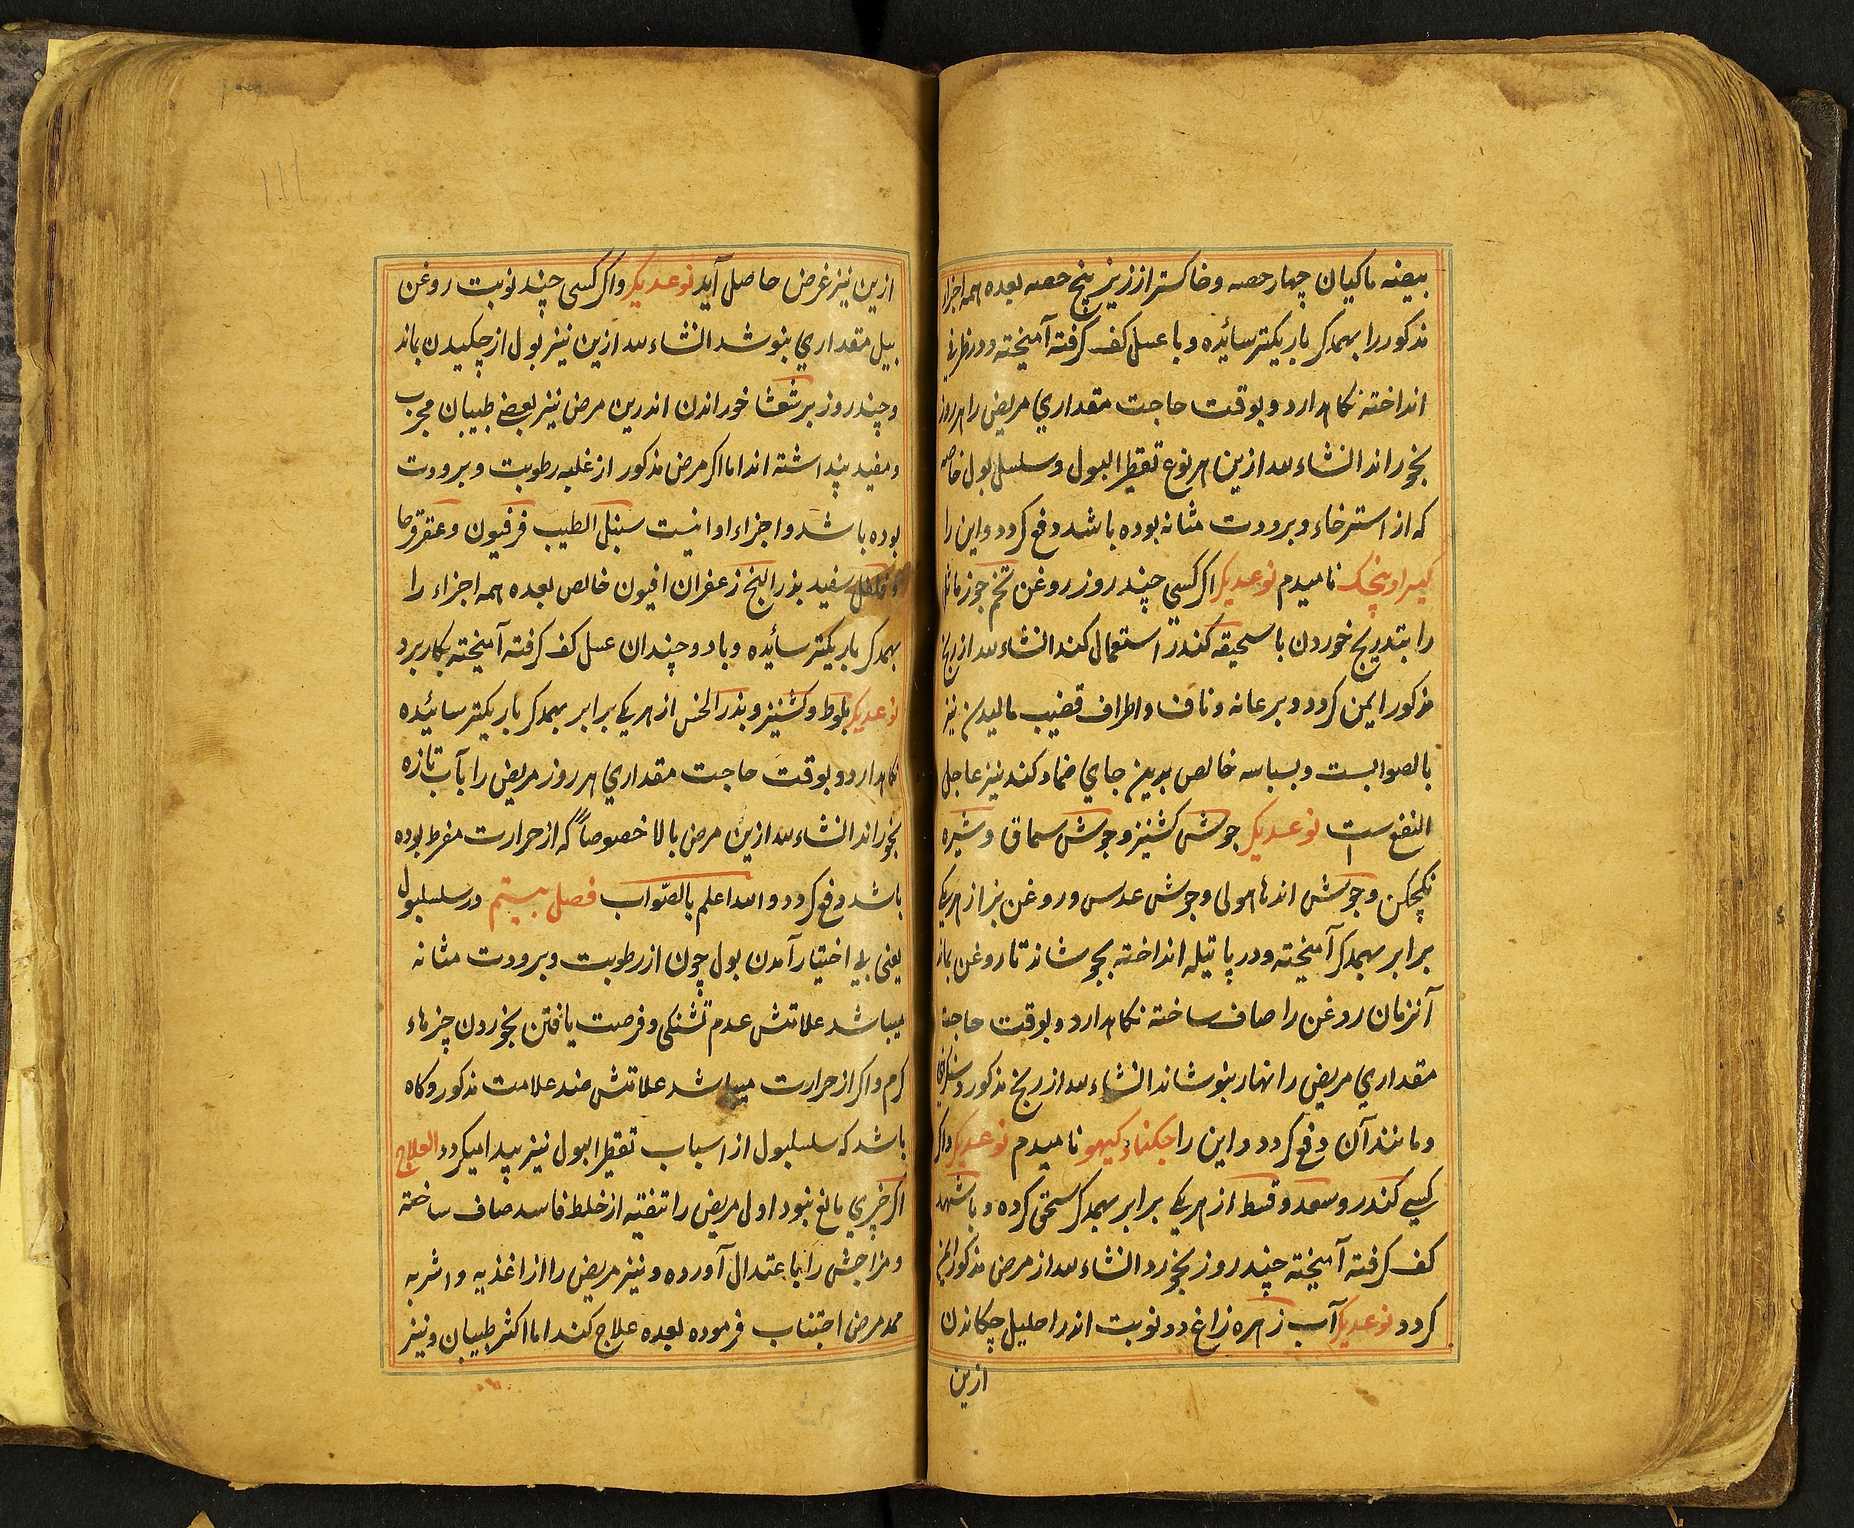 بیضه ماکیان چهار حصه و خاکستر ارزیز پنج حصه بعده همه اجزاء
مذکور را بهمدکر باریکتر سائیده و با عسل کف کرفته آمیخته و در ظرفی
انداخته نکاهدارد و بوقت حاجت مقداری مریض را هر روز
بخوراند انشاءالله ازین هر نوع تقطیر البول و سلسل بول خاصه
که از استرخاء و برودت مثانه بوده باشد دفع کردد و این را
نامیدم نوعدیکر اکر کسی چند روز روغن تخم جوز ماثل
را بتدریج خوردن با سحیقه کندر استعمال کند انشاءالله از رنج
مذکور ایمن کردد و بر عانه و ناف و اطراف قضیب مالیدن نیز
بالصوابست و بسباسه خالص بدین جای ضماد کند نیز عاجل
النفع ست نوعدیکر جوشش کشنیز و جوشش سماق و شیره
و جوشش و جوش عدس و روغن بز از هر یکی
برابر بهمدکر آمیخته و در پاتیله انداخته بجوشاند تا روغن بماند
آنزمان روغن را صاف ساخته نکاهدارد و بوقت حاجت
مقداری مریض را نهار بنوشاند انشاءالله از رنج مذکور
و مانند آن دفع کردد و این را نامیدم نوعدیکر و اکر
کسی کندر و سعد و قسط از هر یکی برابر بهمدکر سحق کرده و با شهد
کف کرفته آمیخته چند روز بخورد انشاءالله از مرض مذکور ایمن
کردد نوعدیکر آب زهره زاغ دو نوبت اندر احلیل چکاندن
ازین
ازین نیز غرض حاصل آید نوعدیکر و اکر کسی چند نوبت روغن
بیل مقداری بنوشد انشاءالله ازین نیز بول از چکیدن بماند
و چند روز برشعثا خوراندن اندرین مرض نیز بعضی طبیبان مجرب
و مفید پنداشته اند اما اکر مرض مذکور از غلبه رطوبت و برودت
بوده باشد و اجزاء او اینست سنبل الطیب فرفیون و عقرقرحا
فلفل سفید بذر البنج زعفران افیون خالص بعده همه اجزاء را
بهمدکر باریکتر سائیده و با دو چندان عسل کف کرفته آمیخته بکار برد
نوعدیکر بلوط و کشنیز و بذر الخس از هر یکی برابر بهمدکر باریکتر سائیده
نکاهدارد و بوقت حاجت مقداری هر روز مریض را بآب تازه
بخوراند انشاءالله ازین مرض بالا خصوصاً که از حرارت مفرط بوده
باشد دفع کردد والله اعلم بالصواب فصل بیستم در سلسلبول
یعنی بی اختیار آمدن بول چون از رطوبت و برودت مثانه
میباشد علامتش عدم تشنکی و فرصت یافتن بخوردن چیزهاء
کرم و اکر از حرارت میباشد علامتش ضد علامت مذکور و کاه
باشد که سلسلبول از اسباب تقطیر البول نیز پیدا میکردد العلاج
اکر چیزی مانع نبود اول مریض را تنقیه از خلط فاسد صاف ساخته
و مزاجش را باعتدال آورده و نیز مریض را از اغذیه و اشربه
ممد مرض اجتناب فرموده بعده علاج کند اما اکثر طبیبان و نیز